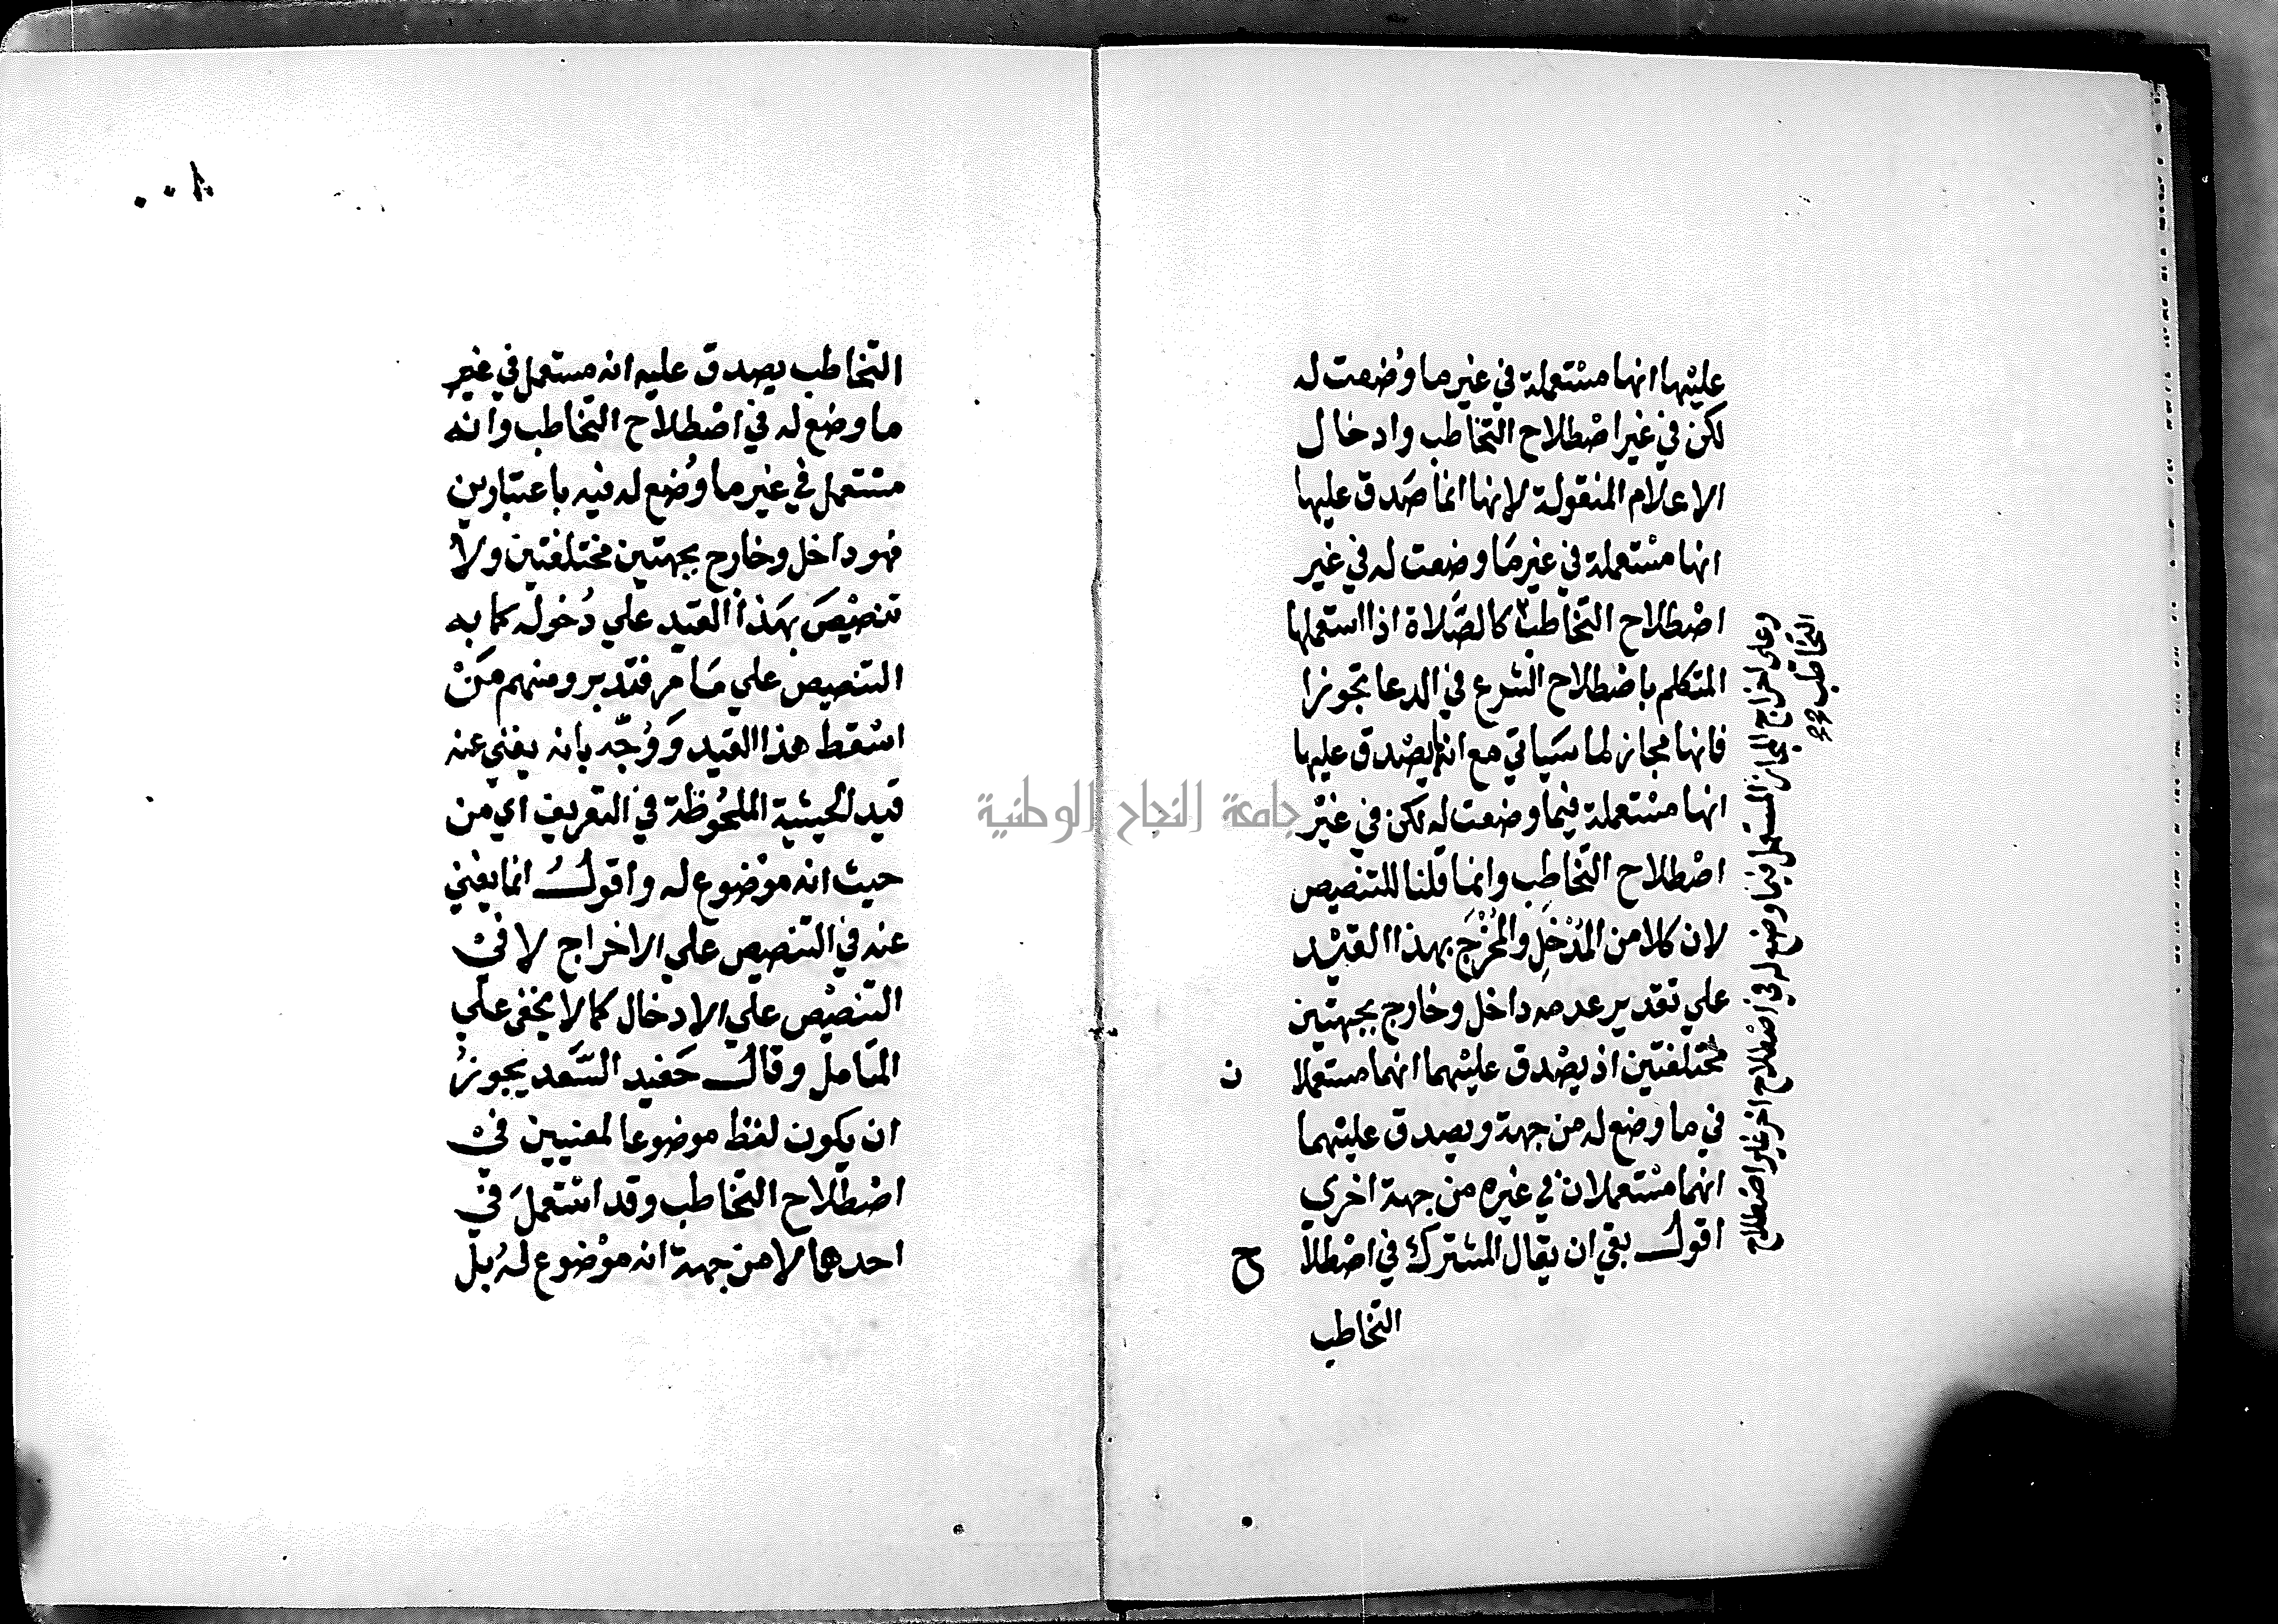 عليها انها مستعملة في غير ما وضعت له
لكن في غير اصطلاح التخاطب وادخال
الاعلام المنقولة لانها انما صدق عليها
انها مستعملة في غير ما وضعت له في غير
اصطلاح التخاطب كالصلاة اذا استعملها
المتكلم باصطلاح الشرع في الدعا تجوزا
فانها مجاز لما سياتي مع انه يصدق عليها
انها مستعملة فيما وضعت له لكن في غير
اصطلاح التخاطب وانما قلنا للتنصيص
لان كلا من المُدْخَلِ والمُخْرَجِ بهذا القيد
علي تقدير عدمه داخل وخارج بجهتين
مختلفتين اذ يصدق عليهما انهما مستعملا ن
في ما وضع له من جهة ويصدق عليهما
انهما مستعملان في غيره من جهة اخري
اقول بقي ان يقال المشترك في اصطلا ح
التخاطب
وعلى اخراج المجاز المستعمل فيما وضع له في اصطلاح اخر غير اصطلاح
التخاطب
التخاطب يصدق عليه انه مستعمل في غير
ما وضع له في اصطلاح التخاطب وانه
مستعمل في غير ما وُضع له فيه باعتبارين
فهو داخل وخارج بجهتين مختلفتين ولا
تنصيصَ بهَذا القيد علي دُخوله كما به
التنصيص علي مَا مر فتدبر ومنهم مَنْ
اسْقط هذا القيد وَوُجّه بانه يغني عنه
قيد الحيثية الملحُوظة في التعريف اي من
حيث انه موضوع له واقولُ انما يغني
عنه في التنصيص علي الاخراج لا في
التنصيص علي الادخال كما لا يخفى علي
المتامل وقال حَفيد السَّعد يجوزُ
ان يكون لفظ موضوعا لمعنيين في
اصطلاح التخاطب وقد استعملَ في
احدهما لا من جهة انه موضوع لهُ بل
جامعة النجاح الوطنية